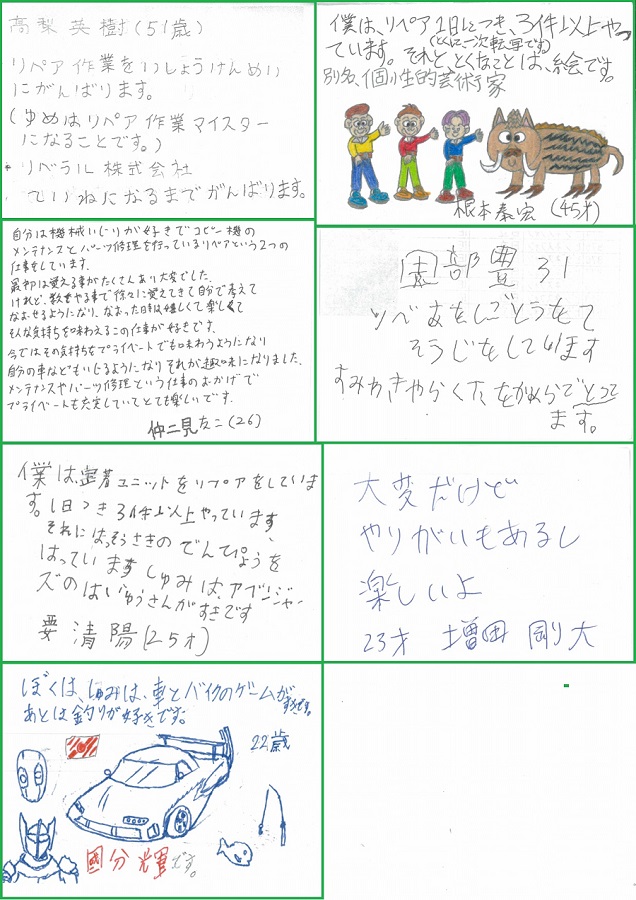 高梨英樹(51歳)
リペア作業をいしょうけんめい
にがんばります。
(ゆめはリペア作業マイスター
になることです。)
リベラル株式会社
ていねになるまでがんばります。
僕は、リペア1日につき、3件以上やっ
(とくに一次転写です)
ています。それと、とくなことは、絵会です。
別名、個性的芸術家
根本泰宏(45才)
自分は機械いじりが好きでコピー機の
メンテナンスとパーツ修理を行っているリペアという2つの
仕事をしています。
最初は覚える事がたくさんあり大変でした。
けれど、数をやる事で徐々に覚えてきて自分で考えて
なおせるようになり、なおった時は嬉しくて楽しくて
そんな気持ちを味わえるこの仕事が好きです。
今ではその気持ちをプライベートでも味わうようになり
自分の車などもいじるようになりそれが趣味になりました。
メンテナンスやパーツ修理という仕事のおかげで
プライベートも充実していてとても楽しいです。
仲二見友二(26)
園部豊 31
そうじをしています
ます。
僕は、定着ユニットをリペアをしていま
す。1日つき3件以上やっています、
それにはっそうさきのでんぴょうを
はっています しゅみは、アブンジャー
ズのはいゆうさんがすきです
要 清陽(25才)
大変だけど
やりがいもあるし
楽しいよ
23才 増田 剛大
ぼくは、しゅみは、車とバイクのゲームが
すきです。
あとは釣りが好きです。
22歳
國分 輝です。